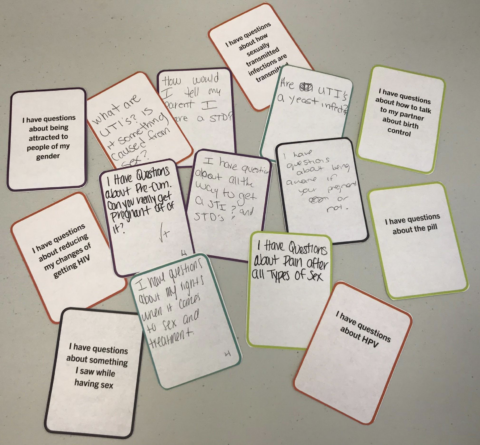 I have questions
about how
sexually
transmitted
infections are
transmitted
How would
I tell my
Parent I
have a STD?
Are UTI's
a yeast infection
I have questions
about how to talk
to my partner
about birth
control
I have questions
about being
attracted to
people of my
gender
what are
UTI's? is
it something
caused from
sex?
I Have Questions
about Pre-cum.
Can you really get
Pregnant off of
it?
I have question
about all the
way to get
a STI? and
STD's?
I have
questions
about being
in
you pregnant
or
not.
I have questions
about the pill
I have questions
about reducing
my changes of
getting HIV
I have questions
about my rights
when it comes
to sex and
treatment
I Have Questions
about Pain after
all Types of Sex
I have questions
about HPV
I have questions
about something
I saw while
having sex